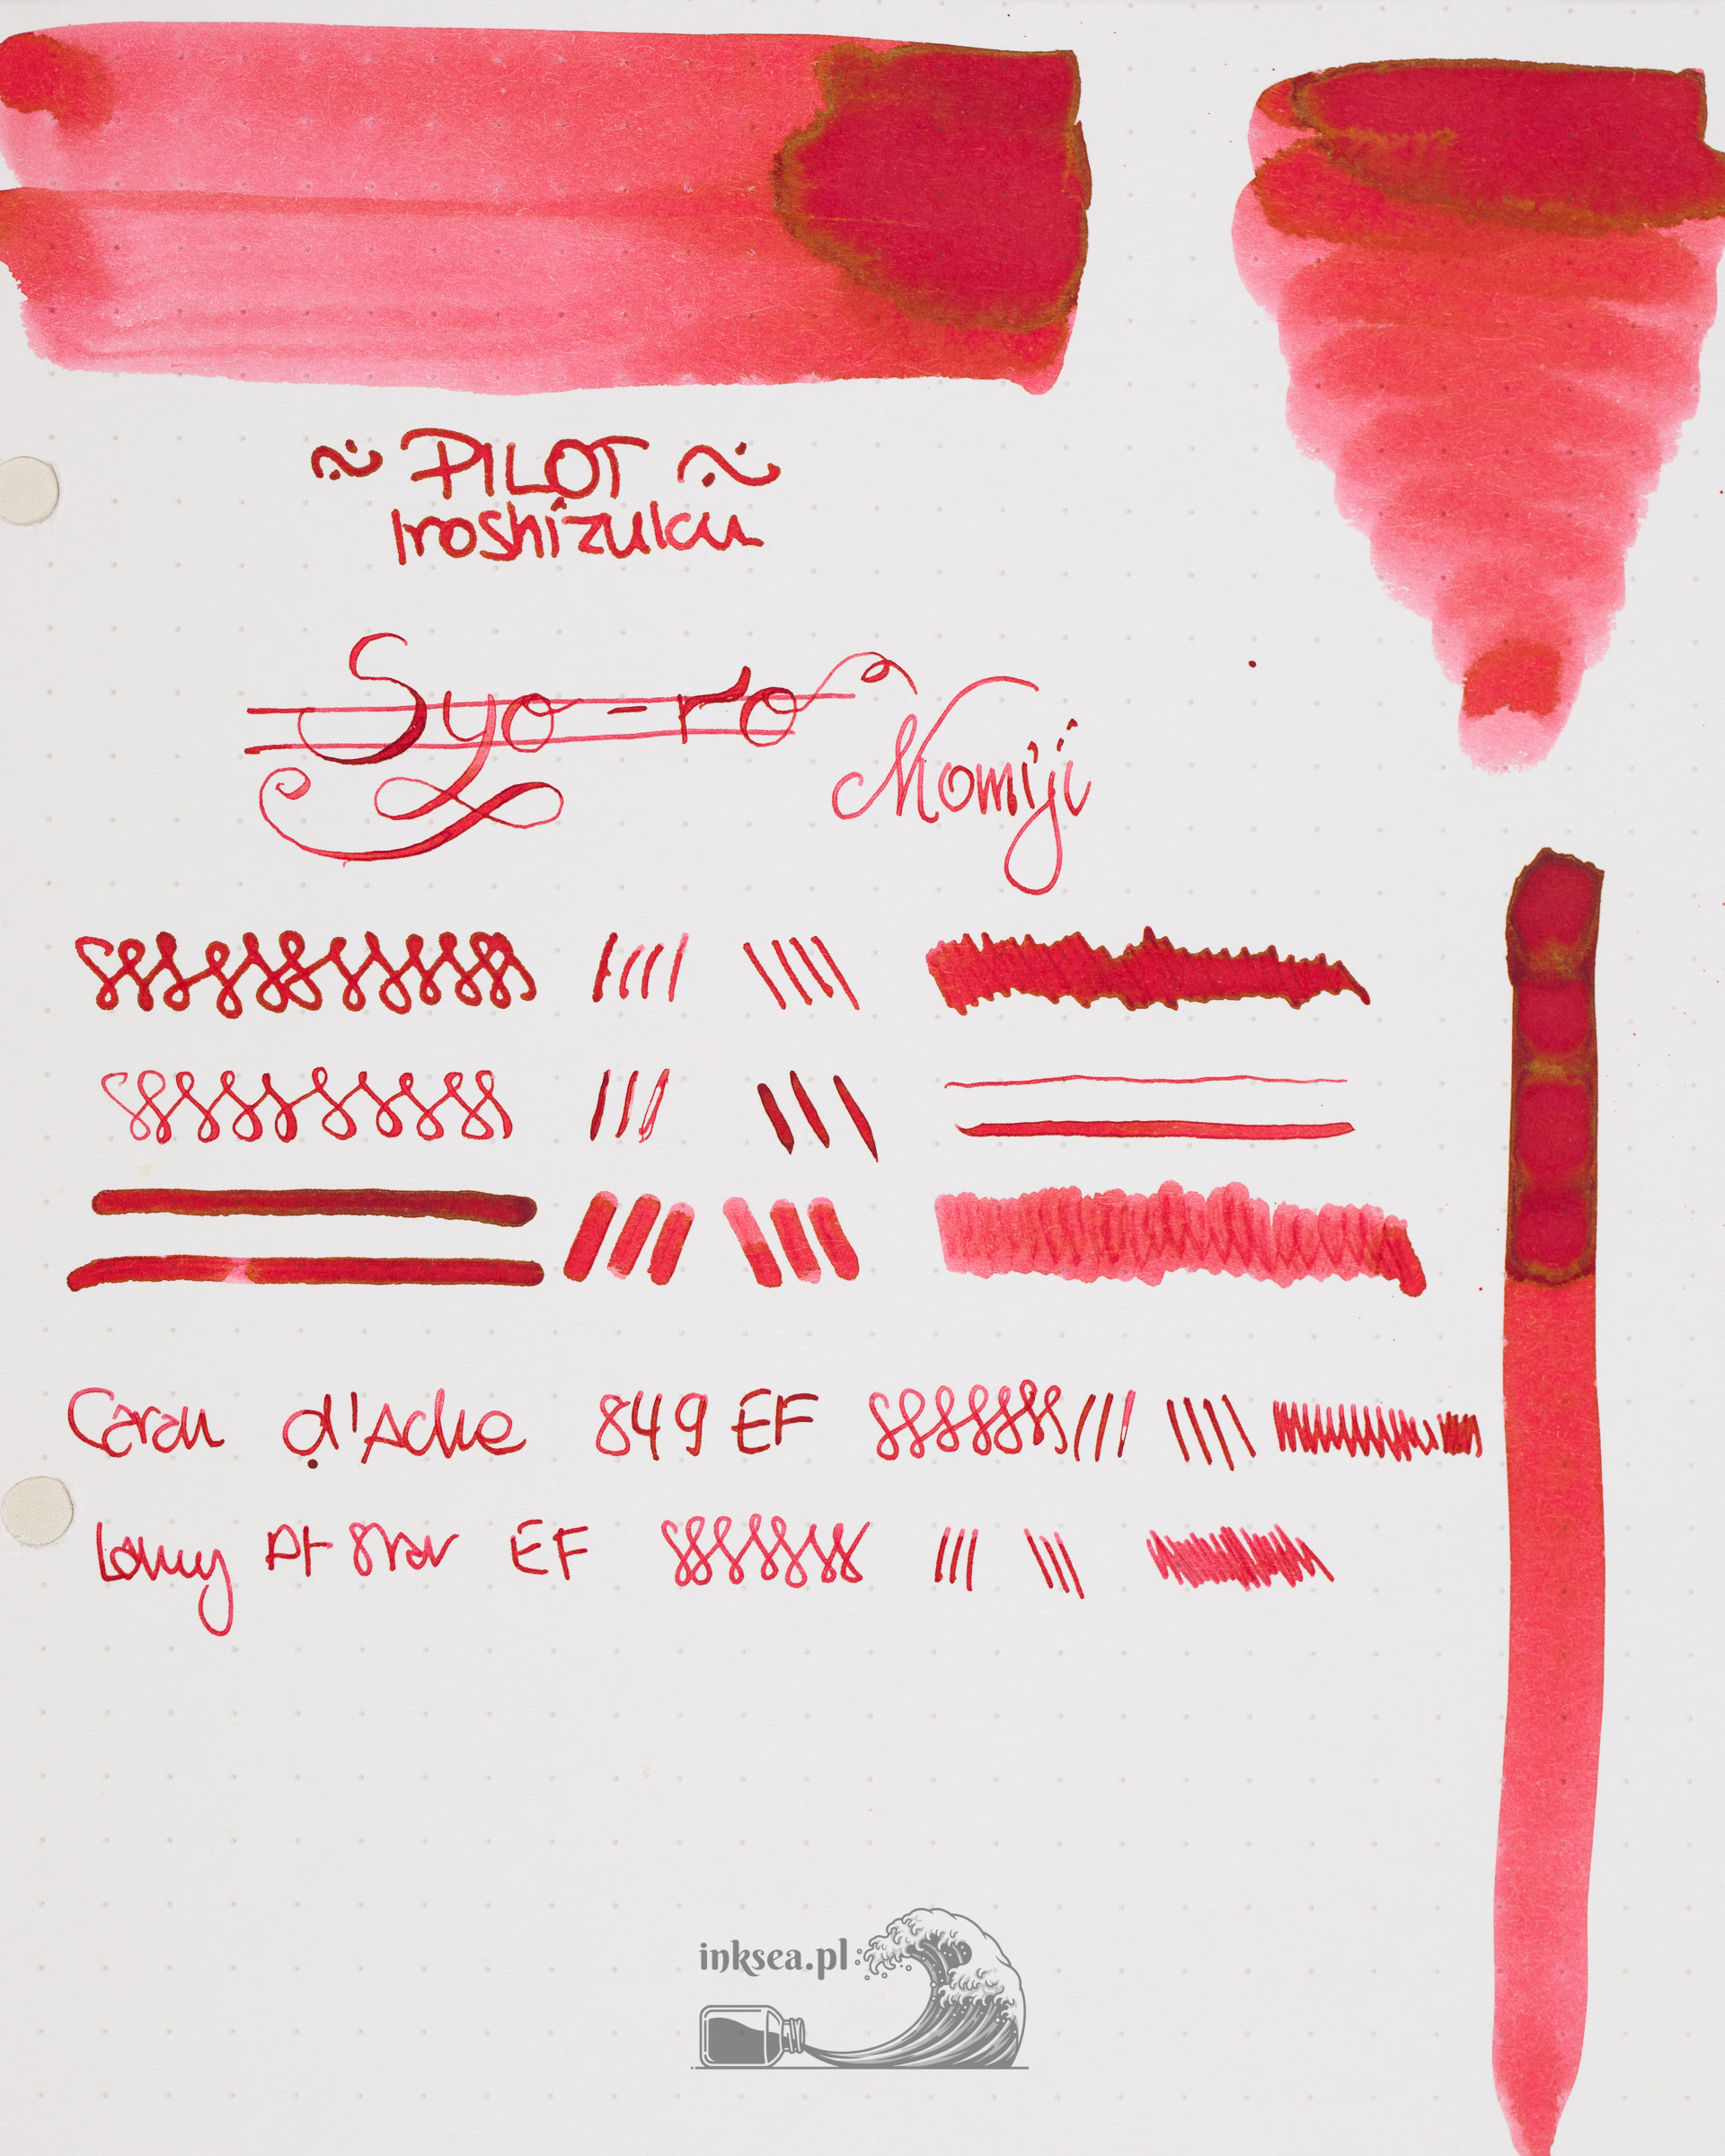 ~ PILOT ~
Iroshizuku
Syo-ro
Momiji
Caran d'Ache 849 EF
Lamy Al Star EF
inksea.pl